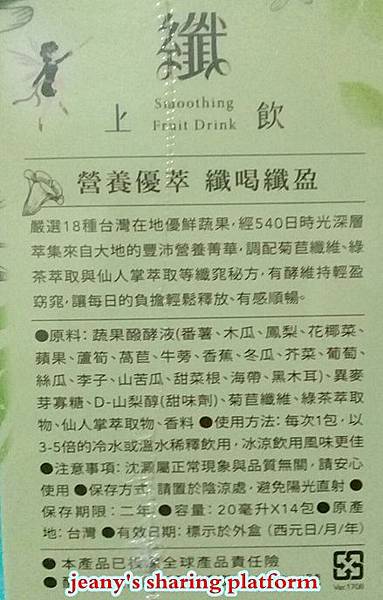 纖
上 Smoothing Fruit Drink 飲
營養優萃 纖喝纖盈
嚴選18種台灣在地優鮮蔬果,經540日時光深層
萃集來自大地的豐沛營養菁華,調配菊苣纖維、綠
茶萃取與仙人掌萃取等纖窕秘方,有酵維持輕盈
窈窕,讓每日的負擔輕鬆釋放、有感順暢。
●原料:蔬果醱酵液(番薯、木瓜、鳳梨、花椰菜、
蘋果、蘆筍、萵苣、牛蒡、香蕉、冬瓜、芥菜、葡萄、
絲瓜、李子、山苦瓜、甜菜根、海帶、黑木耳)、異麥
芽寡糖、D-山梨醇(甜味劑)、菊苣纖維、綠茶萃取
物、仙人掌萃取物、香料 ●使用方法:每次1包,以
3-5倍的冷水或溫水稀釋飲用,冰涼飲用風味更佳
●注意事項:沈澱屬正常現象與品質無關,請安心
使用 ●保存方式:請置於陰涼處,避免陽光直射 ●
保存期限:二年 ●容量:20毫升X14包 ●原產
地:台灣 ●有效日期:標示於外盒 (西元日/月/年)
● 本產品已投保全球產品責任險
Ver.1708
jeany's sharing platform